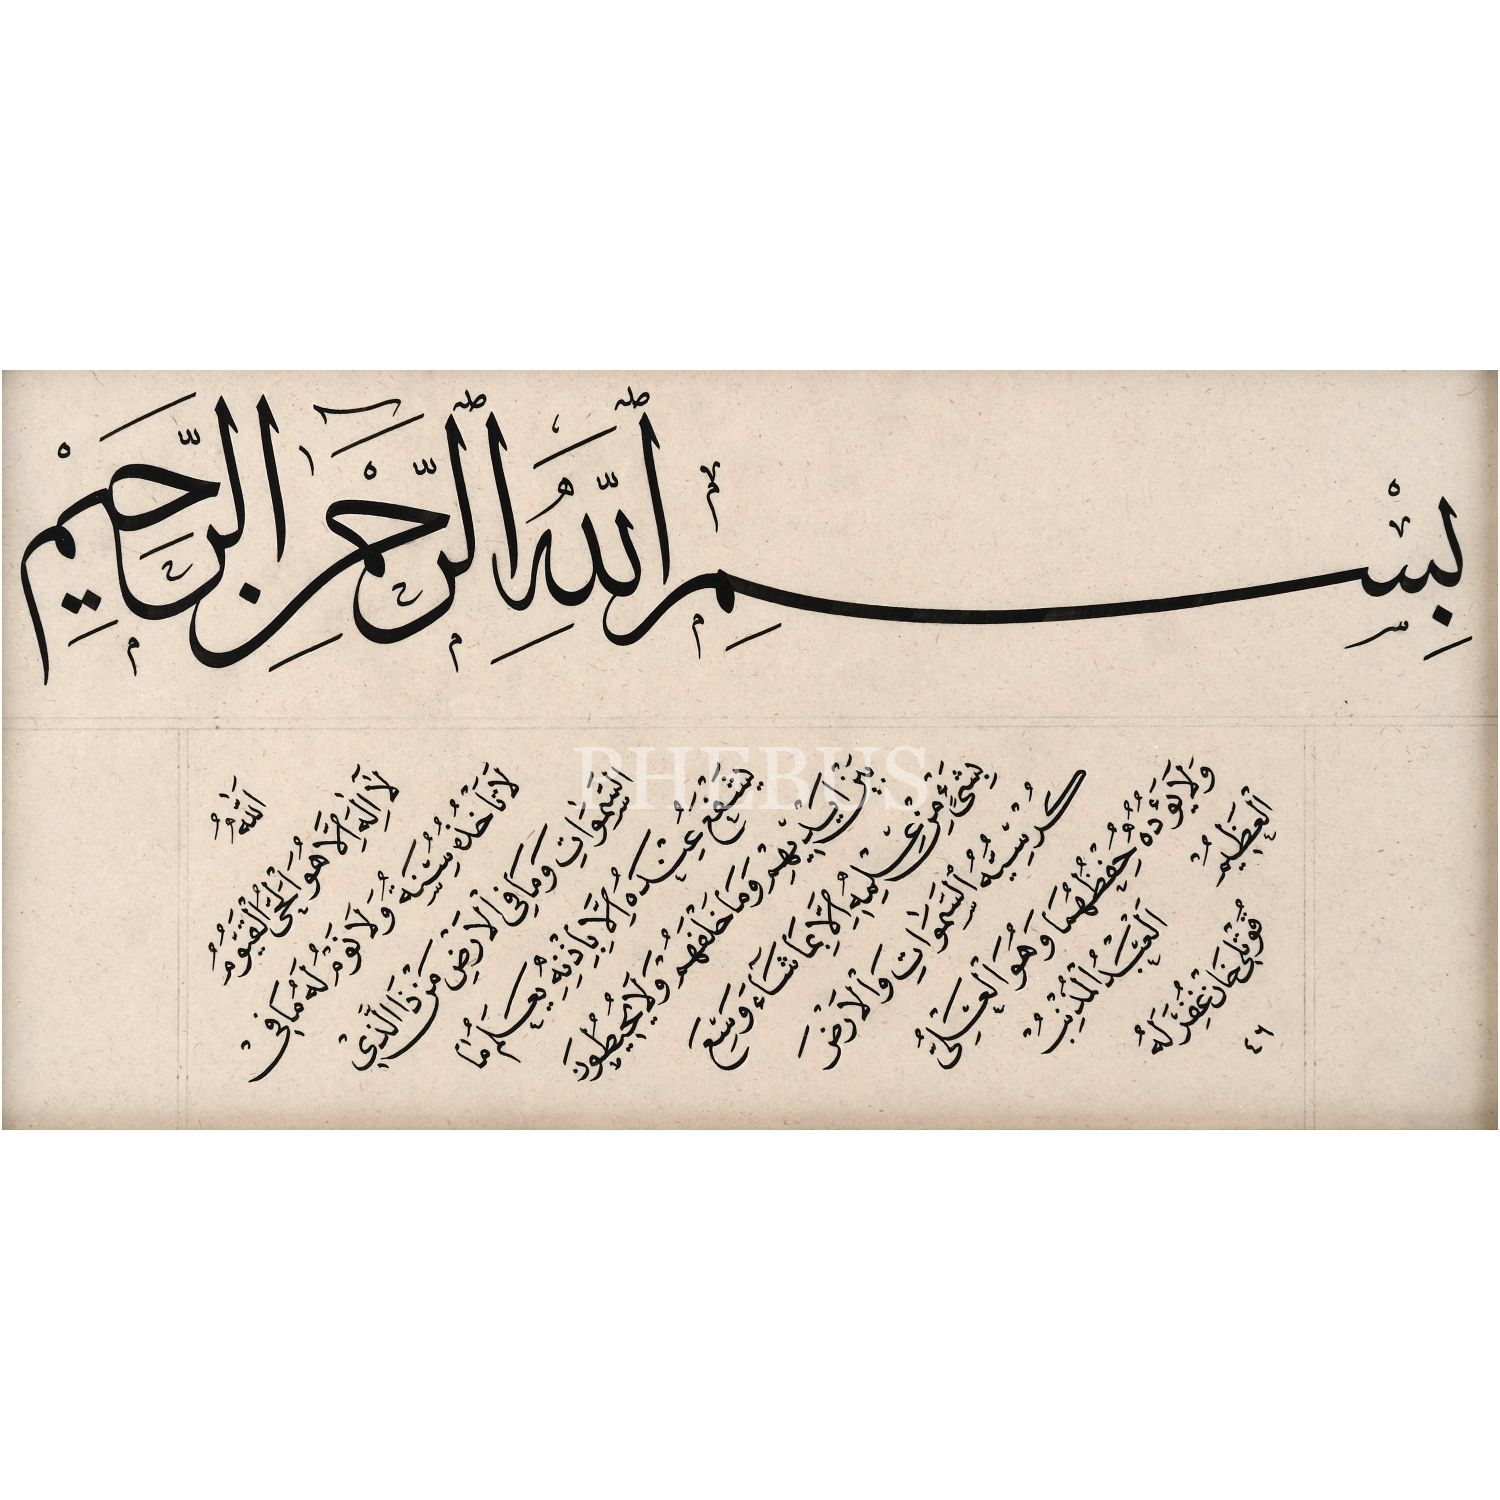 بِسْمِ اللّٰهِ الرَّحْمٰنِ الرَّحِيمِ
PHEBUS
اَللّٰهُ
لَا اِلٰهَ اِلَّا هُوَ اَلْحَىُّ الْقَيُّومُ
لَا تَاْخُذُهُ سِنَةٌ وَلَا نَوْمٌ لَهُ مَا فِى
السَّمٰوَاتِ وَمَا فِى الْاَرْضِ مَنْ ذَا الَّذِى
يَشْفَعُ عِنْدَهُ اِلَّا بِاِذْنِهِ يَعْلَمُ مَا
بَيْنَ اَيْدِيهِمْ وَمَا خَلْفَهُمْ وَلَا يُحِيطُونَ
بِشَىْءٍ مِنْ عِلْمِهِ اِلَّا بِمَا شَاءَ وَسِعَ
كُرْسِيُّهُ السَّمٰوَاتِ وَالْاَرْضَ
وَلَا يَؤُدُهُ حِفْظُهُمَا وَهُوَ الْعَلِىُّ
الْعَظِيمُ
اَلْعَبْدُ الْمُذْنِبُ
خَان غُفِرَ لَهُ
٤٦